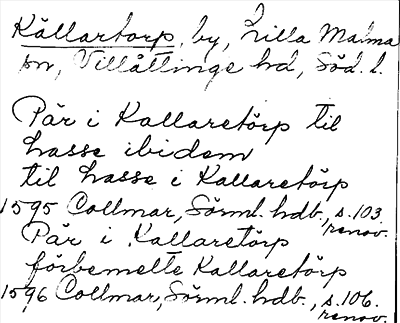 Källartorp, by, Lilla Malma
sn, Villåttinge hd, Söd. l.
Pär i Kallaretörp til
hasse ibidem
til hasse i Kallaretörp
1595 Collmar, Sörml. hdb., s. 103
renov.
Pär i Kallaretörp
förbemelte Kallaretörp
1596 Collmar, Sörml. hdb., s. 106.
renov.